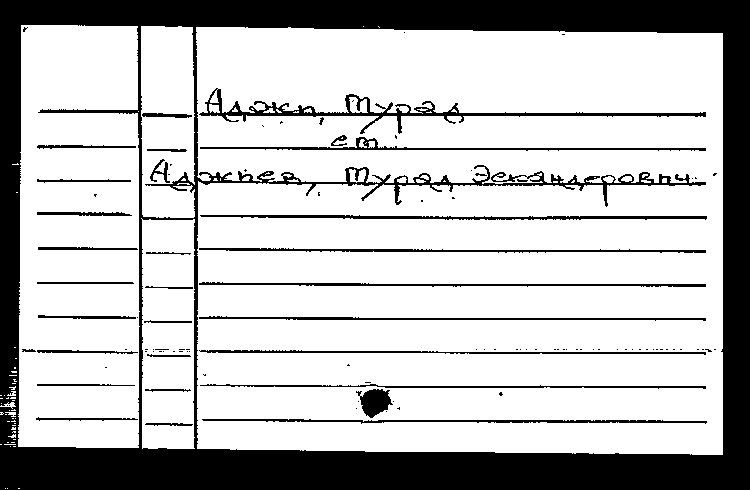 Аджи, Мурад
см.
Аджиев, Мурад Эскандерович